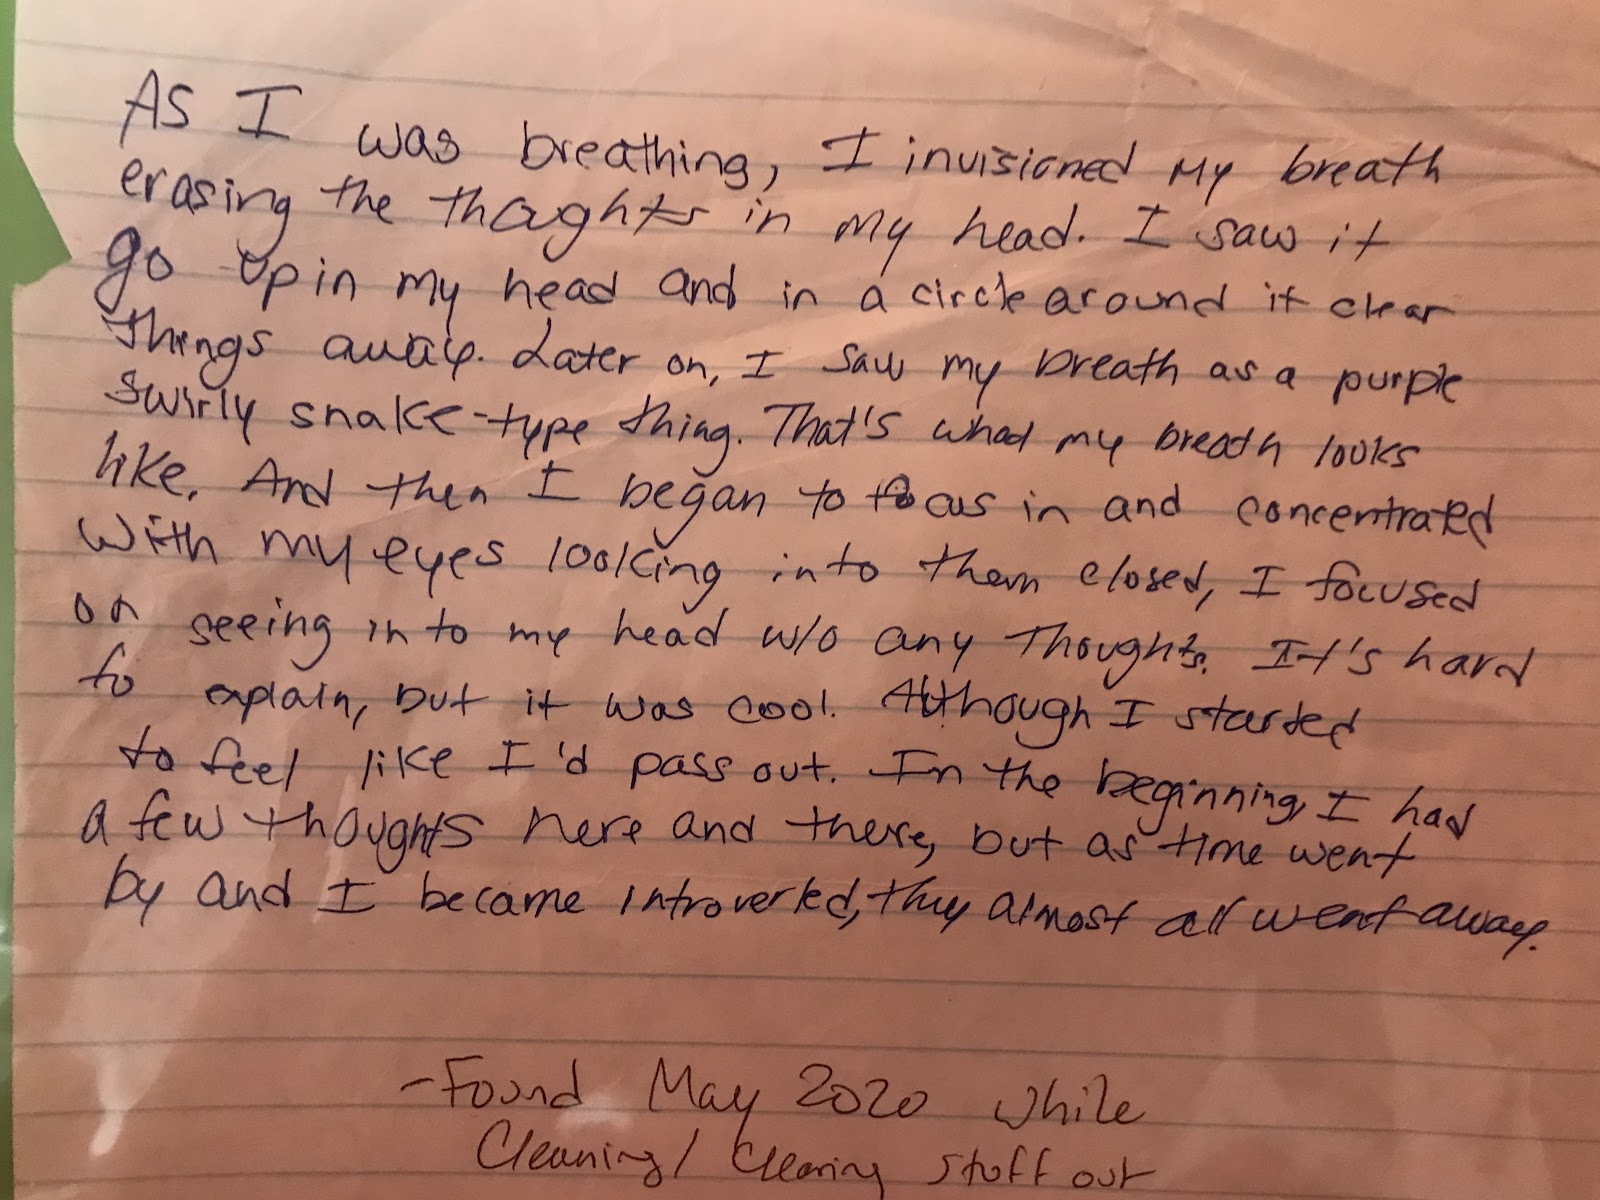 As I was breathing, I invisioned my breath
erasing the thoughts in my head. I saw it
go up in my head and in a circle around it clear
things away. Later on, I saw my breath as a purple
swirly snake-type thing. That's what my breath looks
like. And then I began to focus in and concentrated
with my eyes looking into them closed, I focused
on seeing into my head w/o any thoughts. It's hard
to explain, but it was cool. Although I started
to feel like I'd pass out. In the beginning, I had
a few thoughts here and there, but as time went
by and I became introverted, they almost all went away.
-Found May 2020 while
Cleaning/Clearing stuff out